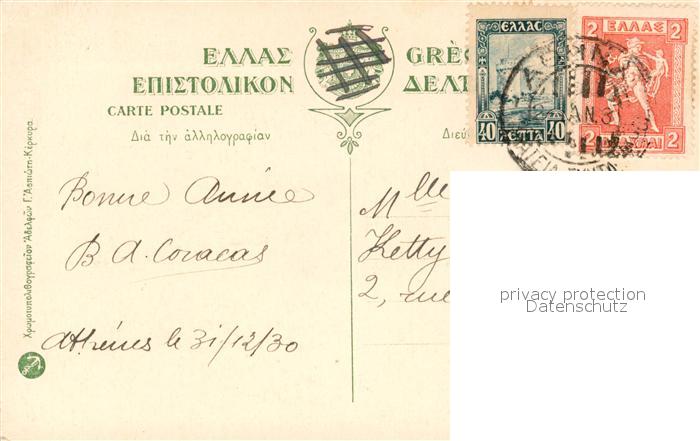 ΕΛΛΑΣ
ΕΠΙΣΤΟΛΙΚΟΝ
CARTE POSTALE
Διὰ τὴν ἀλληλογραφίαν
GRÈC
ΔΕΛΤ
Διεύθ
ΕΛΛΑΣ
40 ΛΕΠΤΑ 40
ΕΛΛΑΣ
2 2
2 2
Χρωματυπολιθογραφεῖον Ἀδελφῶν Γ. Ἀσπιώτη-Κέρκυρα.
Bonne Année
B A. Coracas
Athènes le 31/12/30
Mlle
Ketty
2, rue
privacy protection
Datenschutz